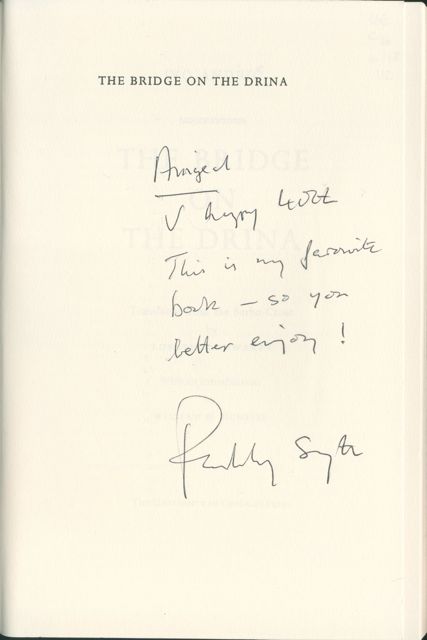 THE BRIDGE ON THE DRINA
V happy 40th
This is my favourite
book – so you
better enjoy!